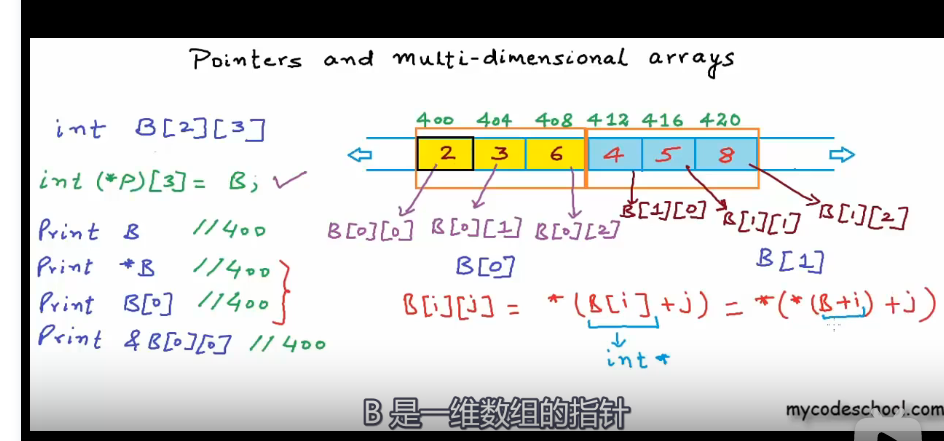 Pointers and multi-dimensional arrays
int B[2][3]
int (*P)[3] = B; ✓
Print B //400
Print *B //400
Print B[0] //400
Print &B[0][0] //400
400 404 408 412 416 420
2 3 6 4 5 8
B[0][0] B[0][1] B[0][2] B[1][0] B[1][1] B[1][2]
B[0] B[1]
B[i][j] = *(B[i]+j) = *(*(B+i)+j)
int *
B 是一维数组的指针
mycodeschool.com